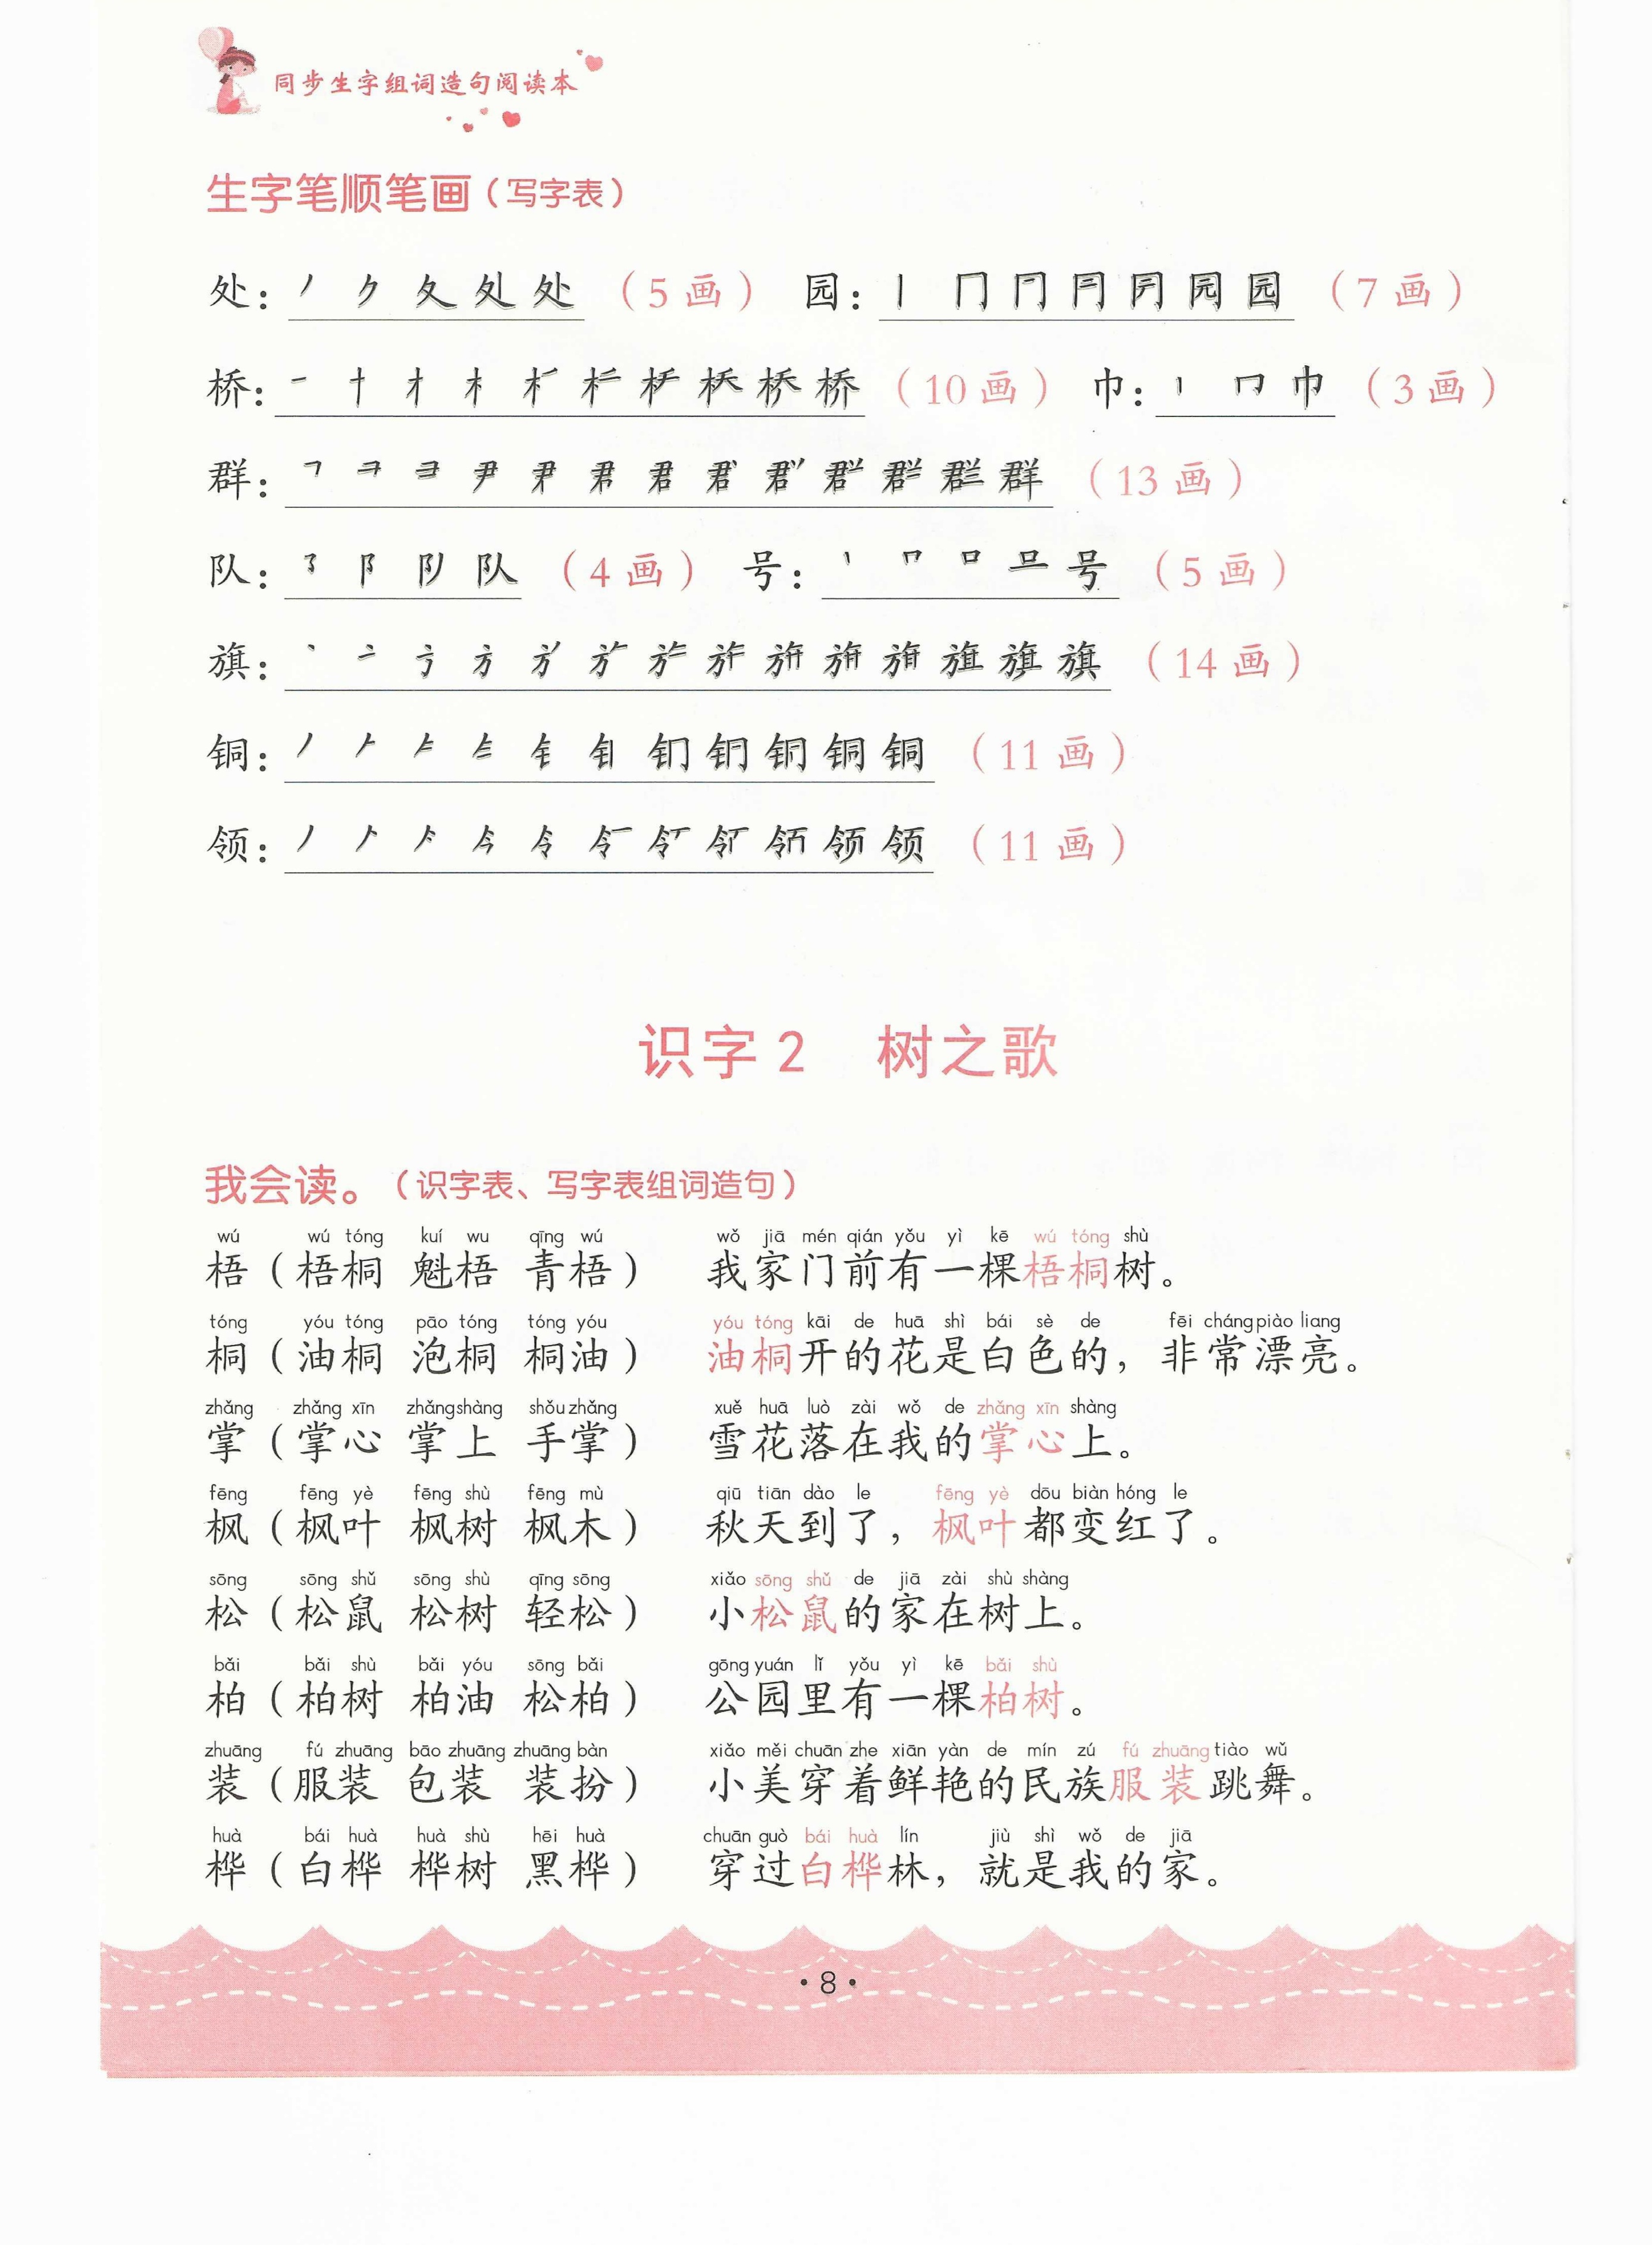 同步生字组词造句阅读本
生字笔顺笔画（写字表）
处：（5画） 园：（7画）
桥：（10画） 巾：（3画）
群：（13画）
队：（4画） 号：（5画）
旗：（14画）
铜：（11画）
领：（11画）
识字2 树之歌
我会读。（识字表、写字表组词造句）
wú wú tóng kuí wu qīng wú wǒ jiā mén qián yǒu yì kē wú tóng shù
梧（梧桐 魁梧 青梧） 我家门前有一棵梧桐树。
tóng yóu tóng pāo tóng tóng yóu yóu tóng kāi de huā shì bái sè de fēi cháng piào liang
桐（油桐 泡桐 桐油） 油桐开的花是白色的，非常漂亮。
zhǎng zhǎng xīn zhǎng shàng shǒu zhǎng xuě huā luò zài wǒ de zhǎng xīn shàng
掌（掌心 掌上 手掌） 雪花落在我的掌心上。
fēng fēng yè fēng shù fēng mù qiū tiān dào le fēng yè dōu biàn hóng le
枫（枫叶 枫树 枫木） 秋天到了，枫叶都变红了。
sōng sōng shǔ sōng shù qīng sōng xiǎo sōng shǔ de jiā zài shù shàng
松（松鼠 松树 轻松） 小松鼠的家在树上。
bǎi bǎi shù bǎi yóu sōng bǎi gōng yuán lǐ yǒu yì kē bǎi shù
柏（柏树 柏油 松柏） 公园里有一棵柏树。
zhuāng fú zhuāng bāo zhuāng zhuāng bàn xiǎo měi chuān zhe xiān yàn de mín zú fú zhuāng tiào wǔ
装（服装 包装 装扮） 小美穿着鲜艳的民族服装跳舞。
huà bái huà huà shù hēi huà chuān guò bái huà lín jiù shì wǒ de jiā
桦（白桦 桦树 黑桦） 穿过白桦林，就是我的家。
·8·